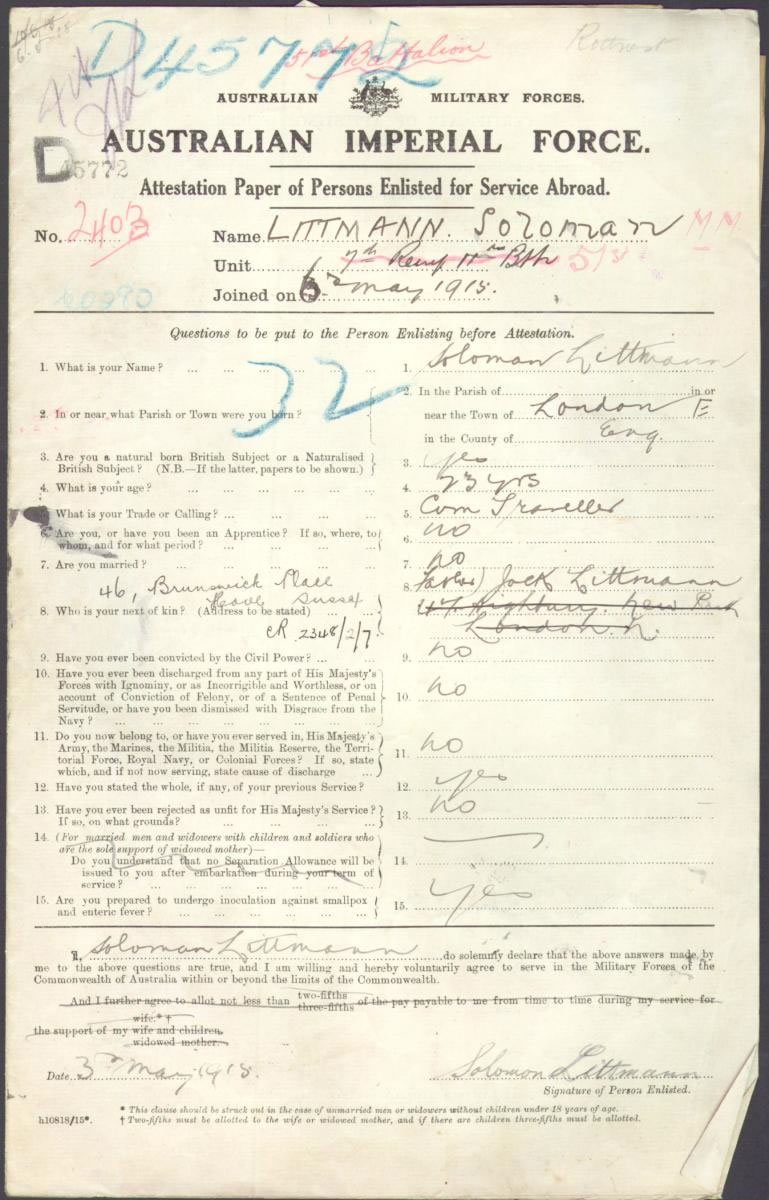 D45772
51st Battalion
Rottnest
AUSTRALIAN MILITARY FORCES.
AUSTRALIAN IMPERIAL FORCE.
D 45772
Attestation Paper of Persons Enlisted for Service Abroad.
No. 2403 Name LITTMANN. Soloman MM
Unit 7th Reinf 11th Bth 51st
Joined on 3rd May 1915.
60090
Questions to be put to the Person Enlisting before Attestation.
32
1. What is your Name? ... 1. Soloman Littmann
2. In or near what Parish or Town were you born? ... 2. In the Parish of in or
near the Town of London E
in the County of Eng.
3. Are you a natural born British Subject or a Naturalised
British Subject? (N.B.—If the latter, papers to be shown.) 3. yes
4. What is your age? ... 4. 23 yrs
5. What is your Trade or Calling? ... 5. Com Traveller
6. Are you, or have you been an Apprentice? If so, where, to
whom, and for what period? ... 6. no
7. Are you married? ... 7. no
46, Brunswick Place
Hove Sussex
8. Who is your next of kin? (Address to be stated) ... 8. Father) Jack Littmann
47 Highbury New Park
London. N.
CR 2348/2/7
9. Have you ever been convicted by the Civil Power? ... 9. no
10. Have you ever been discharged from any part of His Majesty's
Forces with Ignominy, or as Incorrigible and Worthless, or on
account of Conviction of Felony, or of a Sentence of Penal
Servitude, or have you been dismissed with Disgrace from the
Navy? ... 10. no
11. Do you now belong to, or have you ever served in, His Majesty's
Army, the Marines, the Militia, the Militia Reserve, the Terri-
torial Force, Royal Navy, or Colonial Forces? If so, state
which, and if not now serving, state cause of discharge ... 11. no
12. Have you stated the whole, if any, of your previous Service? 12. yes
13. Have you ever been rejected as unfit for His Majesty's Service?
If so, on what grounds? ... 13. no
14. (For married men and widowers with children and soldiers who
are the sole support of widowed mother)—
Do you understand that no Separation Allowance will be
issued to you after embarkation during your term of
service? ... 14.
15. Are you prepared to undergo inoculation against smallpox
and enteric fever? ... 15. yes
I, Soloman Littmann do solemnly declare that the above answers made by
me to the above questions are true, and I am willing and hereby voluntarily agree to serve in the Military Forces of the
Commonwealth of Australia within or beyond the limits of the Commonwealth.
And I further agree to allot not less than two-fifths three-fifths of the pay payable to me from time to time during my service for
wife.*†
the support of my wife and children.
widowed mother.
Date 3rd May 1915. Solomon Littmann
Signature of Person Enlisted.
* This clause should be struck out in the case of unmarried men or widowers without children under 18 years of age.
h10818/15*. † Two-fifths must be allotted to the wife or widowed mother, and if there are children three-fifths must be allotted.